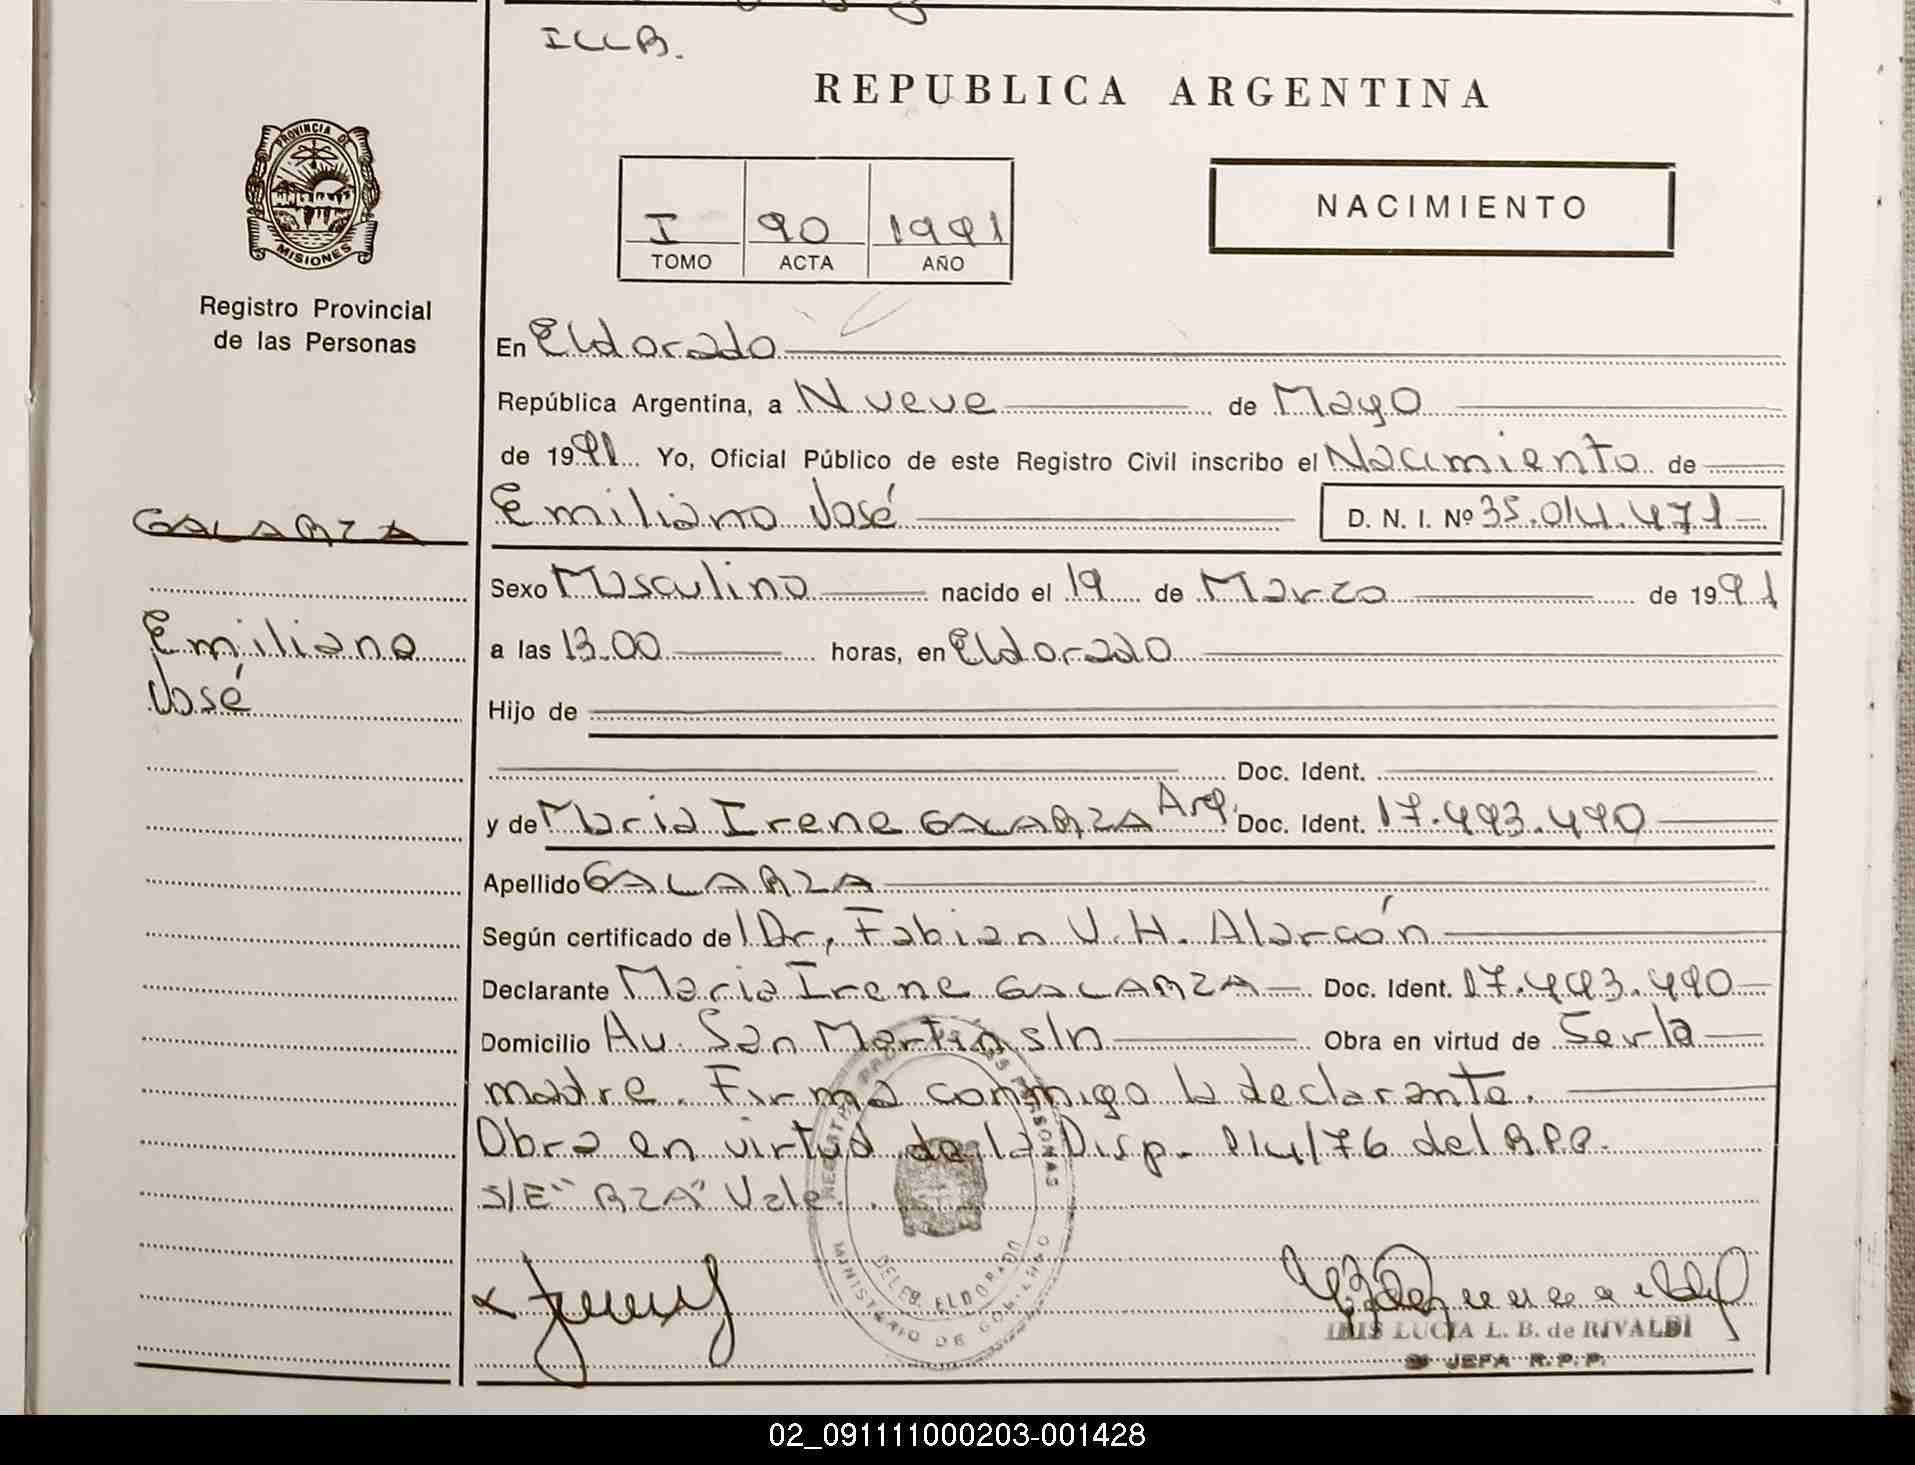 ILLB.
REPUBLICA ARGENTINA
PROVINCIA DE
MISIONES
Registro Provincial
de las Personas
I 90 1991
TOMO ACTA AÑO
NACIMIENTO
En Eldorado
República Argentina, a Nueve de Mayo
de 1991 Yo, Oficial Público de este Registro Civil inscribo el Nacimiento de
Emiliano José D. N. I. Nº 35.014.471
GALARZA
Emiliano
José
Sexo Masculino nacido el 19 de Marzo de 1991
a las 13.00 horas, en Eldorado
Hijo de
Doc. Ident.
y de Maria Irene GALARZA Arg. Doc. Ident. 17.493.490
Apellido GALARZA
Según certificado del Dr, Fabian V.H. Alarcón
Declarante Maria Irene GALARZA Doc. Ident. 17.493.490
Domicilio Av. San Martín s/n Obra en virtud de Ser la
madre. Firma conmigo la declarante.
Obra en virtud de la Disp. 214/76 del R.P.P.
S/E "RZA" Vale.
DELEG. ELDORADO
MINISTERIO DE GOBIERNO
IRIS LUCIA L. B. de RIVALDI
JEFA R.P.P.
02_091111000203-001428